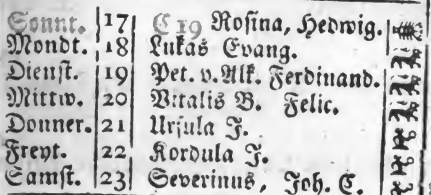 Sonnt. 17 C 19 Rosina, Hedwig.
Mondt. 18 Lukas Evang.
Dienst. 19 Pet. v. Alk. Ferdinand.
Mittw. 20 Vitalis B. Felic.
Donner. 21 Ursula J.
Freyt. 22 Kordula J.
Samst. 23 Severinus, Joh. C.